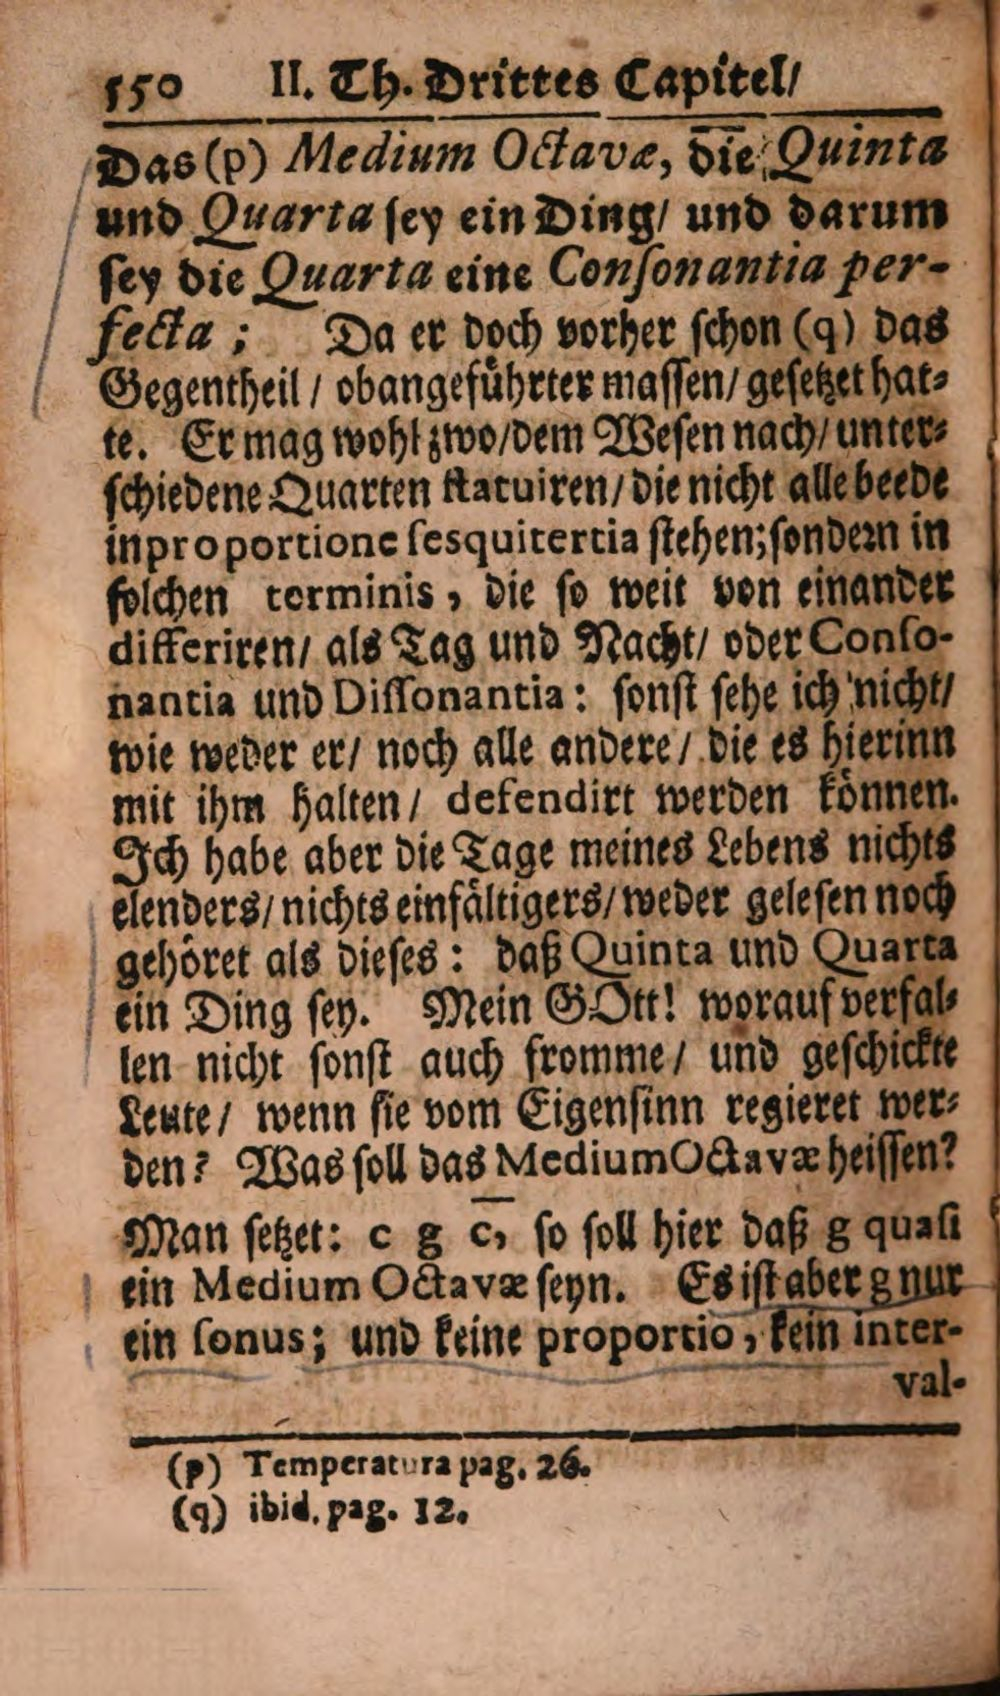 550 II. Th. Drittes Capitel/
Das (p) Medium Octavæ, die Quinta
und Quarta sey ein Ding/ und darum
sey die Quarta eine Consonantia per-
fecta; Da er doch vorher schon (q) das
Gegentheil / obangeführter massen/ gesetzet hat-
te. Er mag wohl zwo/dem Wesen nach/ unter-
schiedene Quarten statuiren/ die nicht alle beede
in proportione sesquitertia stehen; sondern in
solchen terminis, die so weit von einander
differiren/ als Tag und Nacht/ oder Conso-
nantia und Dissonantia: sonst sehe ich nicht/
wie weder er/ noch alle andere/ die es hierinn
mit ihm halten/ defendirt werden können.
Ich habe aber die Tage meines Lebens nichts
elenders/ nichts einfältigers/ weder gelesen noch
gehöret als dieses: daß Quinta und Quarta
ein Ding sey. Mein GOtt! worauf verfal-
len nicht sonst auch fromme/ und geschickte
Leute/ wenn sie vom Eigensinn regieret wer-
den? Was soll das Medium Octavæ heissen?
Man setzet: c g c̅, so soll hier daß g quasi
ein Medium Octavæ seyn. Es ist aber g nur
ein sonus; und keine proportio, kein inter-
val-
(p) Temperatura pag. 26.
(q) ibid. pag. 12.